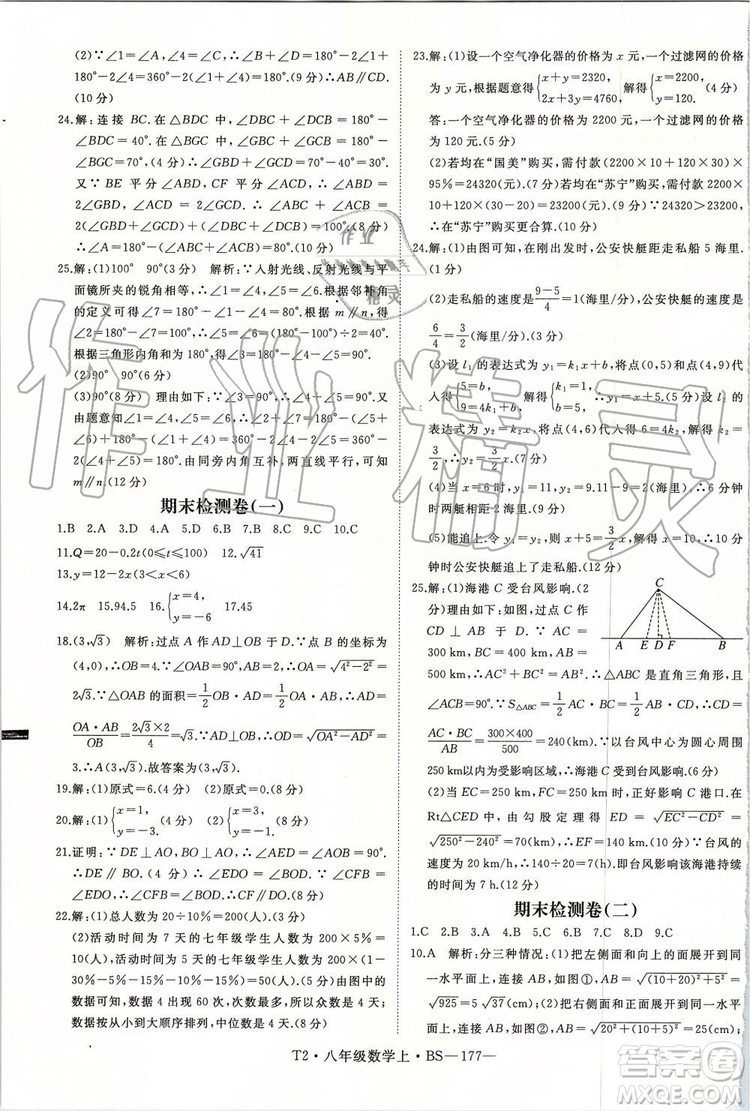 (2)∵∠1=∠A,∠2=∠D,∴∠1+∠2=∠1+
180°-2∠4=360°-2(∠1+∠4)=180°.∴AB∥CD.
(10分)
24.解:连接 BC.在△BDC 中,∠DBC+∠DCB=180°-
∠BDC=40°.在△BGC 中,∠GBC+∠GCB=180°-
∠BGC=70°,(4分)∴∠GBD+∠GCD=70°-40°=
30°.又∵BE 平分∠ABD,CF 平分∠ACD,∴∠ABD=
2∠GBD,∠ACD=2∠GCD,∴∠ABD+∠ACD=
2∠GBD+2∠GCD=60°,∴∠ABC+∠ACB=∠ABD+
∠ACD+(∠DBC+∠DCB)=100°.(8分)
∴∠A=180°-(∠ABC+∠ACB)=80°.(10分)
25.解:(1)100° 90°(3分) 解析:∵入射光线、反射光线与平
面镜所夹的锐角相等,∴∠1=∠4=50°.根据邻补角
的定义可得∠7=180°-∠1-∠4=80°.根据m∥n,得
∠2=180°-∠7=100°,∴∠5=(180°-100°)÷2=40°.
根据三角形内角和为180°,∴∠3=180°-∠4-∠5=90°.
(2)90° 90°(6分)
(3)90°(8分) 理由如下:∵∠3=90°,∴∠4+∠5=90°.又
由题意知∠1=∠4,∠5=∠6,∴∠2+∠7=180°-(∠5+
∠6)+180°-(∠1+∠4)=360°-2∠4-2∠5=360°-
2(∠4+∠5)=180°.由同旁内角互补,两直线平行,可知
m∥n.(12分)
期末检测卷(一)
1.B 2.A 3.D 4.A 5.D 6.D 7.B 8.C 9.C 10.C
11.Q=20-0.2t(0≤t≤100) 12.√41
13.y=12-2x(3<x<6)
14.2π 15.94.5 16.{x=4, y=-6 17.45
18.(3,√3) 解析:过点 A 作 AD⊥OB 于 D.∵B 的坐标为
(4,0),∴OB=4.∵∠OAB=90°,AB=2,∴OA=√(4²-2²)=
2√3.∵△OAB 的面积=1/2 OB·AD=1/2 OA·AB,∴AD=
OA·AB/OB=2√3×2/4=√3.∵AD⊥OB,∴OD=√(OA²-AD²)=
3.∴A(3,√3).故答案为(3,√3).
19.解:(1)原式=6.(4分) (2)原式=0.(8分)
20.解:(1){x=1, y=-3.(4分) (2){x=0, y=-1.(8分)
21.证明:∵DE⊥AO,BO⊥AO,∴∠AED=∠AOB=90°.
∴DE∥BO.(4分)∴∠EDO=∠BOD.∵∠CFB=
∠EDO,∴∠CFB=∠BOD.∴CF∥DO.(8分)
22.解:(1)总人数为20÷10%=200(人).(2分)
(2)活动时间为7天的七年级学生人数为200×5%=
10(人),活动时间为5天的七年级学生人数为200×(1-
30%-5%-15%-10%-15%)=50(人).由图中的
数据可知,数据4出现60次,次数最多,所以众数是4天;
数据按从小到大顺序排列,中位数为4天.(8分)
23.解:(1)设一个空气净化器的价格为 x 元,一个过滤网的价
格为 y 元,根据题意得{x+y=2320, x+2y=4760. 解得{x=2200, y=120.(4分)
答:一个空气净化器的价格为2200元,一个过滤网的价
格为120元.(5分)
(2)若均在“国美”购买,需付款(2200×10+120×30)×
95%=24320(元).(7分)若均在“苏宁”购买,需付款2200×
10+120×(30-10)=24400(元).(9分)∵24320>24200,
∴在“苏宁”购买更合算.(10分)
24.解:(1)由图可知,在刚出发时,公安快艇距走私船5海里.
(1分)
(2)走私船的速度是(9-5)/4=1(海里/分),公安快艇的速度是
6/4=3/2(海里/分).(3分)
(3)设 l₁ 的表达式为 y₁=k₁x+b,将点(0,5),(4,9)代
入得{5=b, 9=4k₁+b, 解得{k₁=1, b=5. ∴y₁=x+5.(5分)设 l₂ 的
表达式为 y₂=k₂x,将点(4,6)代入得6=4k₂,解得k₂=
3/2.∴y₂=3/2x.(7分)
(4)当 x=6 时,y₁=11,y₂=9.11-9=2(海里).∴6分钟
时两艇相距2海里.(9分)
(5)能追上.(10分)当 y₁=y₂,即x+5=3/2x时,x=10,则10分
钟时公安快艇追上了走私船.(12分)
25.解:(1)海港C受台风影响.(2分)
理由如下:如图,过点C作
CD⊥AB于D.∵AC=
300 km,BC=400 km,AB=
500 km,∴AC²+BC²=
AB².∴△ABC是直角三角形,
∠ACB=90°.∵S△ABC=1/2AC·BC=1/2CD·AB,∴CD=
AC·BC/AB=300×400/500=240(km).∵以台风中心为圆心周围
250 km以内为受影响区域,∴海港C受台风影响.(6分)
(2)当EC=250 km,FC=250 km时,正好影响C港口.在
Rt△CED中,由勾股定理得ED=√(EC²-CD²)=
√(250²-240²)=70(km),∴EF=140 km.∵台风的
速度为20 km/h,∴140÷20=7(h).即台风影响该海港持续的
时间为7 h.(12分)
C
A E D F B
期末检测卷(二)
1.C 2.B 3.A 4.C 5.A 6.C 7.D 8.D 9.C
10.A 解析:分三种情况:(1)把左侧面和向上的面展开到同
一水平面上,连接 AB,如图①,AB=√((10+20)²+5²)=
√925=5√37(cm);(2)把右侧面和正面展开到同一水平
面上,连接 AB,如图②,AB=√(20²+(10+5)²)=25(cm);
T2·八年级数学上·BS—177—
作业精灵
MXQE.COM